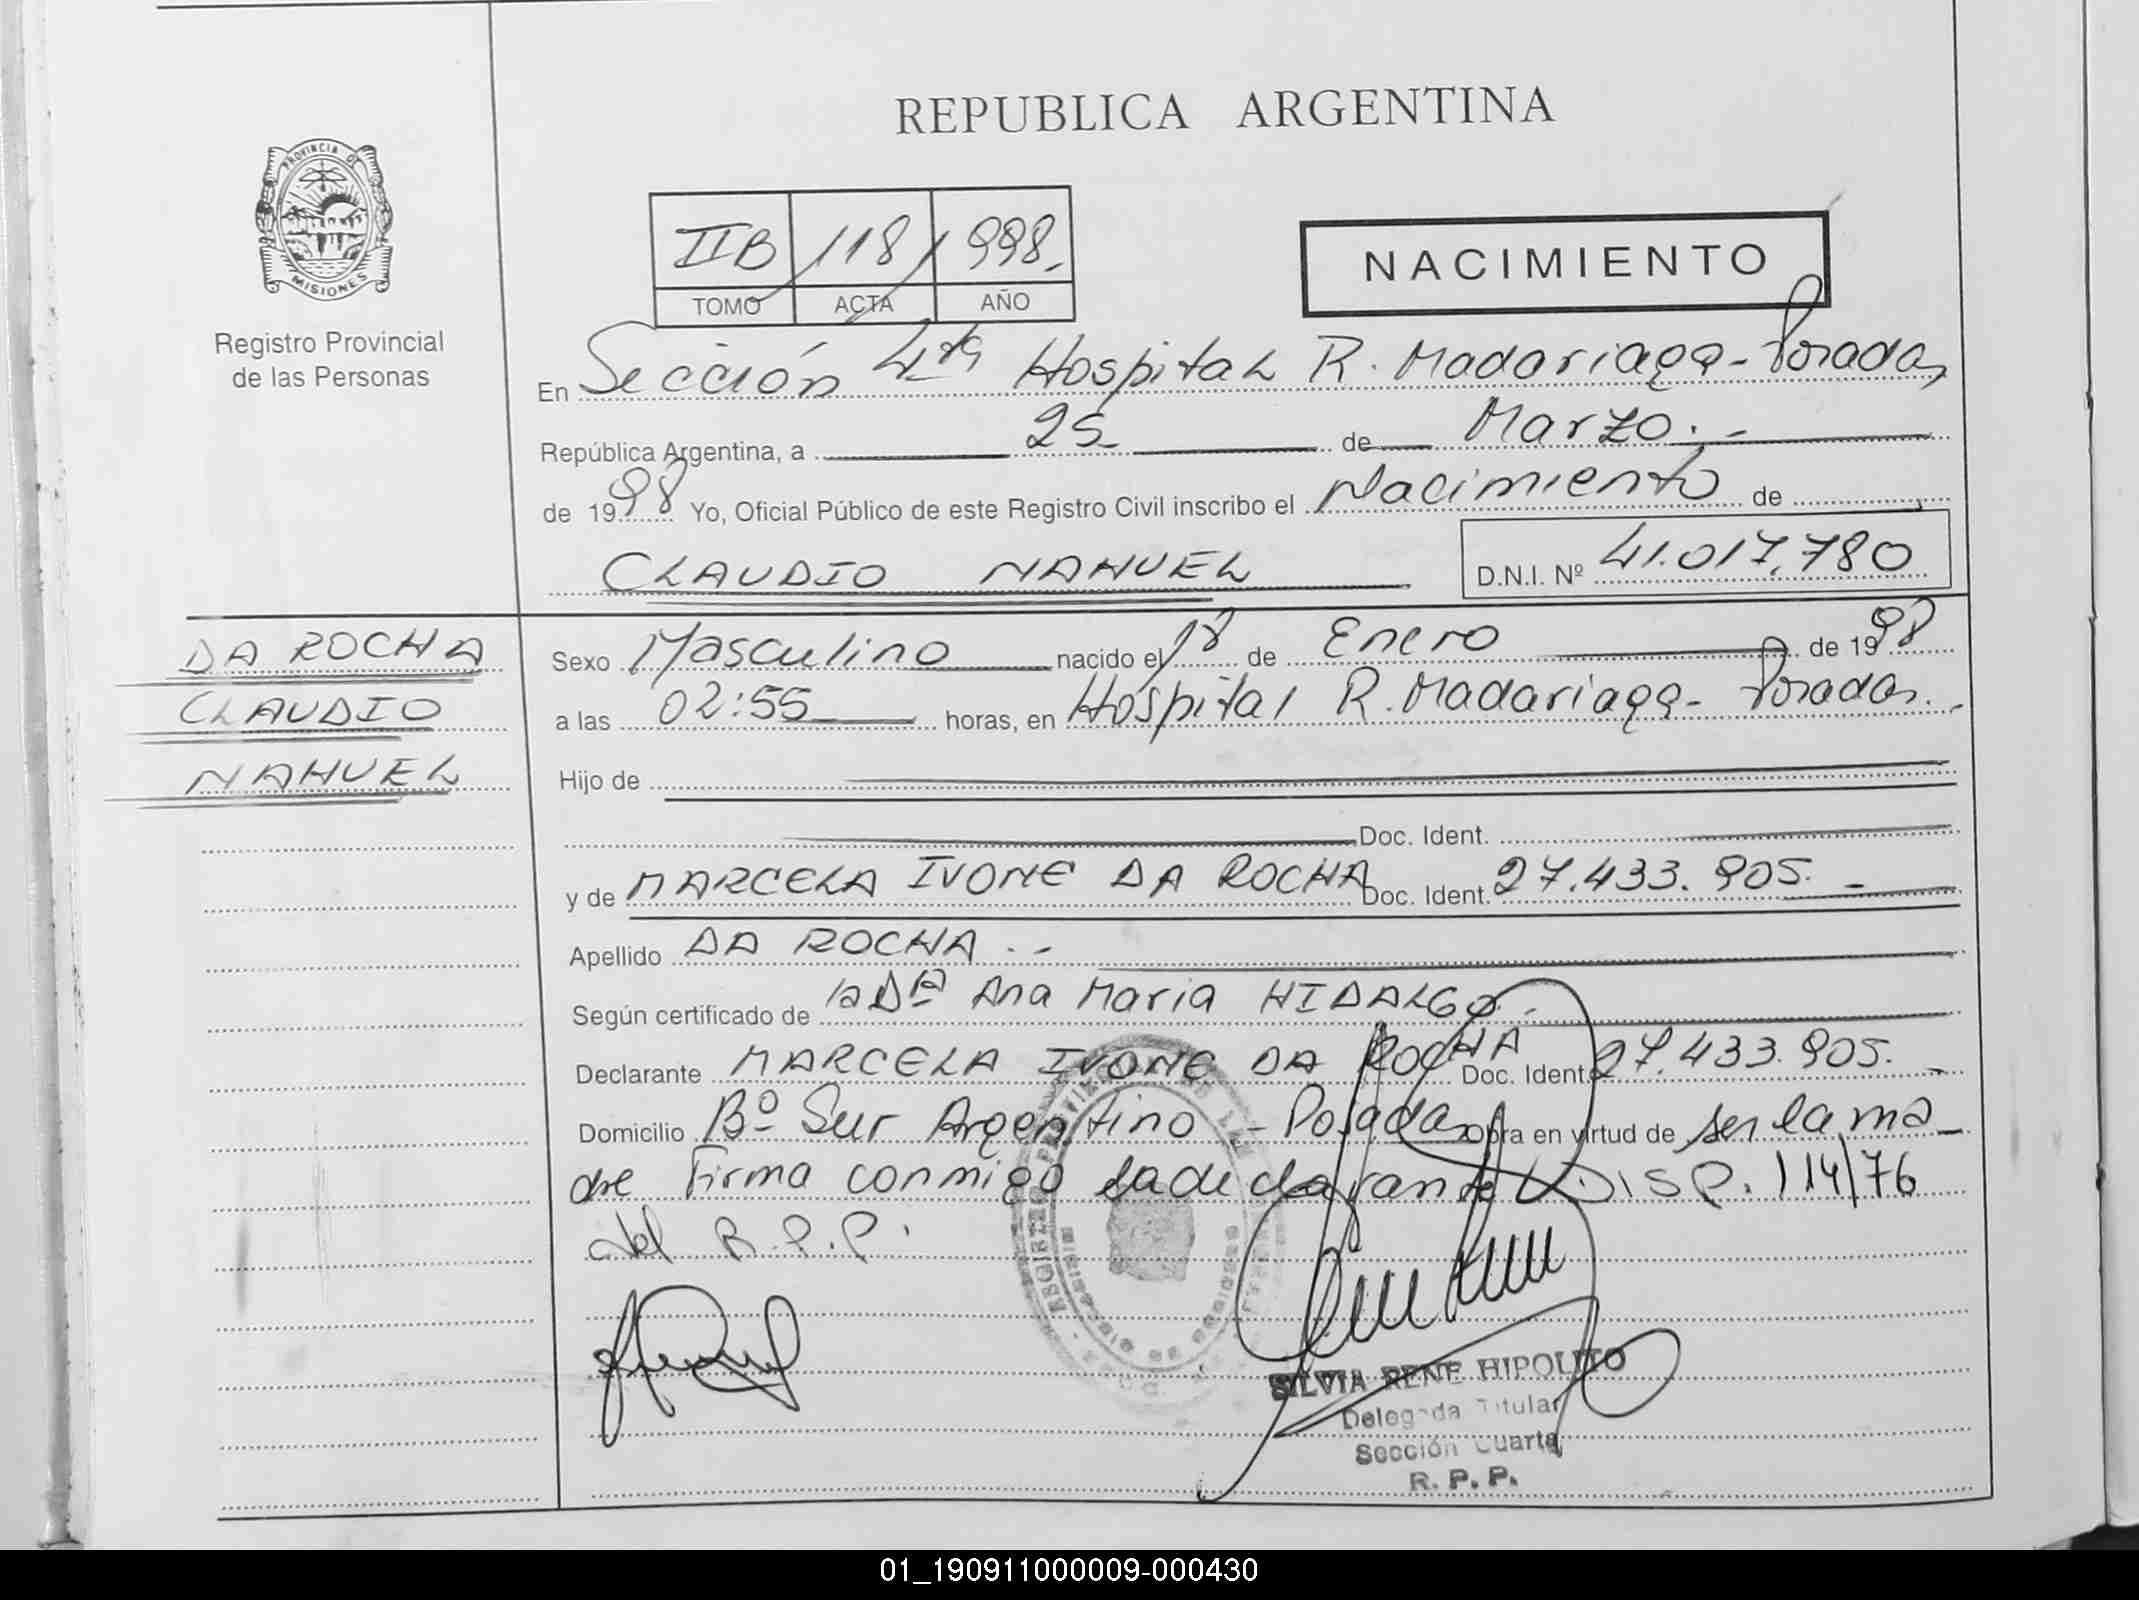 REPUBLICA ARGENTINA
PROVINCIA DE
MISIONES
Registro Provincial
de las Personas
IIB 118 998.
TOMO ACTA AÑO
NACIMIENTO
En Sección 4ta Hospital R. Madariaga - Posadas,
República Argentina, a 25 de Marzo. -
de 1998 Yo, Oficial Público de este Registro Civil inscribo el Nacimiento de
CLAUDIO NAHUEL D.N.I. Nº 41.017.780
DA ROCHA
CLAUDIO
NAHUEL
Sexo Masculino nacido el 18 de Enero de 1998
a las 02:55 horas, en Hospital R. Madariaga - Posadas. -
Hijo de
Doc. Ident.
y de MARCELA IVONE DA ROCHA Doc. Ident. 27.433.905. -
Apellido DA ROCHA . -
Según certificado de la Dra Ana Maria HIDALGO. -
Declarante MARCELA IVONE DA ROCHA Doc. Ident. 27.433.905. -
Domicilio Bº Sur Argentino - Posadas Obra en virtud de ser la ma_
dre Firma conmigo la declarante DISP. 114/76
del R.P.P.
SILVIA RENE HIPOLITO
Delegada Titular
Sección Cuarta
R. P. P.
01_190911000009-000430